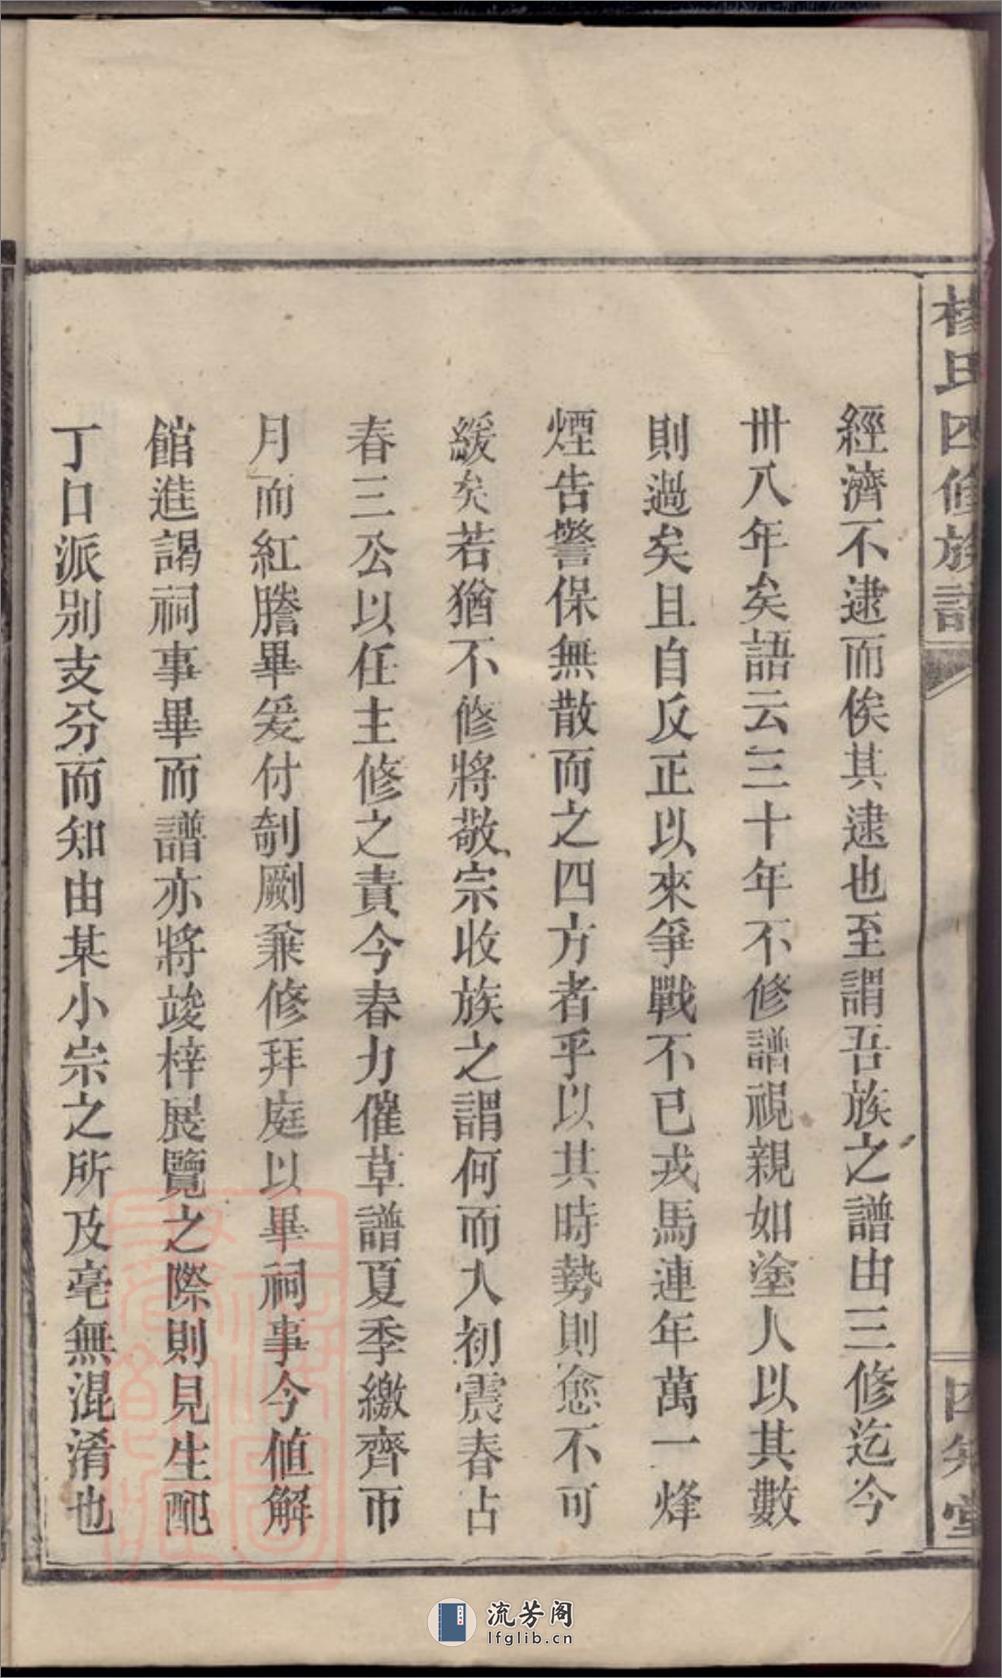 楊氏四修族譜
四知堂
經濟不逮而俟其逮也至謂吾族之譜由三修迄今
卅八年矣語云三十年不修譜視親如塗人以其數
則過矣且自反正以來爭戰不已戎馬連年萬一烽
煙告警保無散而之四方者乎以其時勢則愈不可
緩矣若猶不修將敬宗收族之謂何而大初震春占
春三公以任主修之責今春力催草譜夏季繳齊帀
月而紅謄畢爰付剞劂兼修拜庭以畢祠事今值解
館進謁祠事畢而譜亦將竣梓展覽之際則見生配
丁口派別支分而知由某小宗之所及毫無混淆也
流芳阁
lfglib.cn